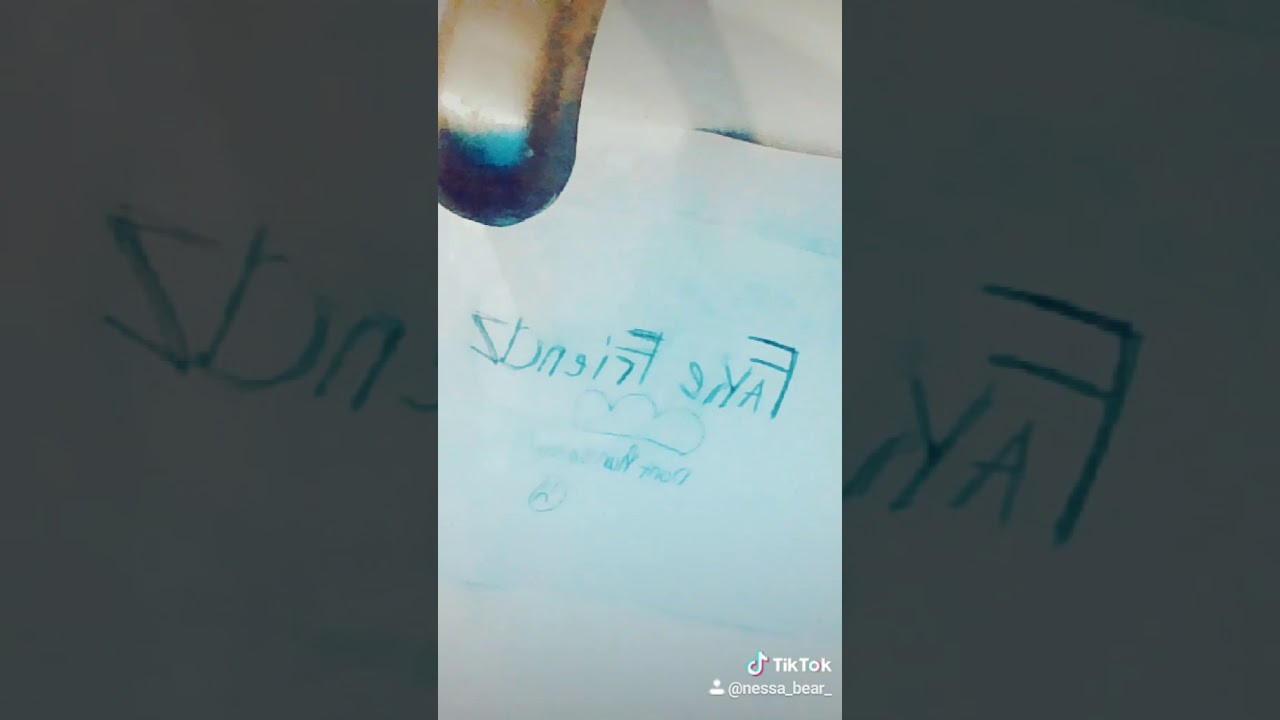 FAKe Friendz
Dont
TikTok
@nessa_bear_